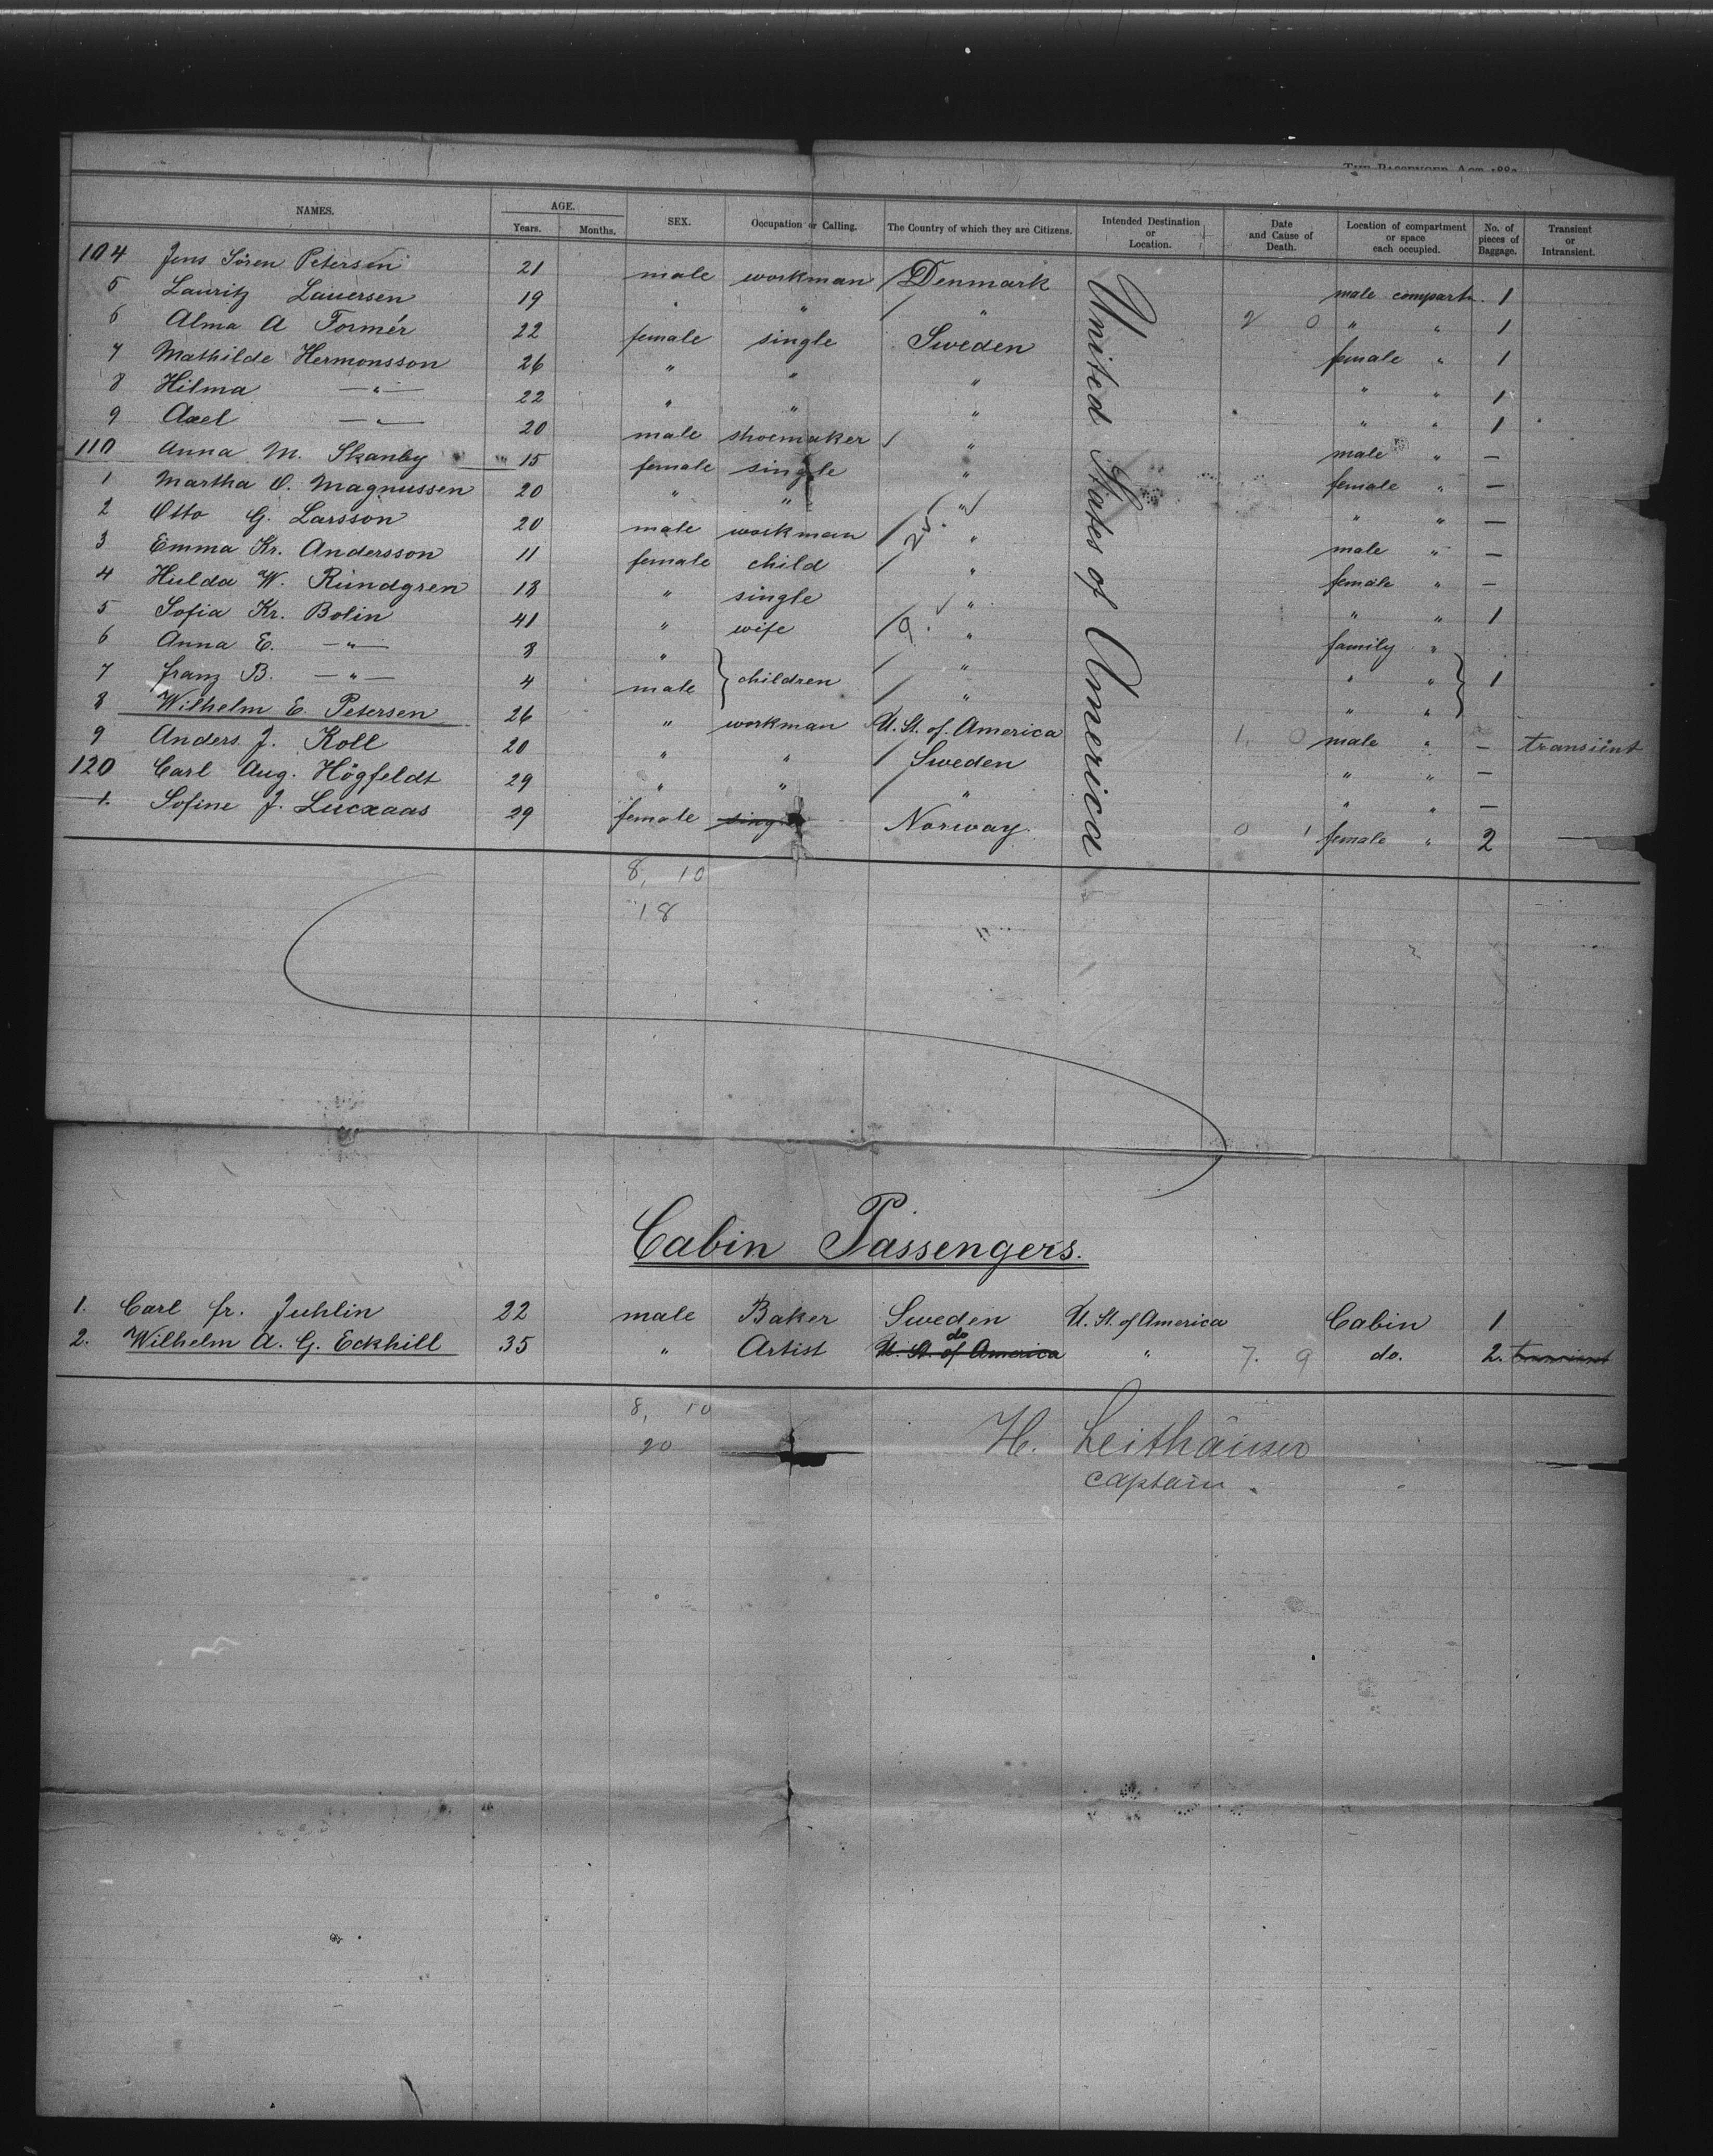 THE PASSENGER ACT 188
NAMES. AGE. Years. Months. SEX. Occupation or Calling. The Country of which they are Citizens. Intended Destination or Location. Date and Cause of Death. Location of compartment or space each occupied. No. of pieces of Baggage. Transient or Intransient.
104 Jens Sören Petersen 21 male workman / Denmark male compartm. 1
5 Lauritz Lauersen 19 " " / " 2 0 " " 1
6 Alma A Formér 22 female single Sweden female " 1
7 Mathilde Hermonsson 26 " " " " " 1
8 Hilma —"— 22 " " " " " 1
9 Axel —"— 20 male shoemaker / " male " —
110 Anna M. Skanby 15 female single " female " —
1 Martha O. Magnussen 20 " " " " " —
2 Otto G. Larsson 20 male workman / 25. " male " —
3 Emma Kr. Andersson 11 female child / " female " —
4 Hulda W. Rundgren 18 " single / " " " 1
5 Sofia Kr. Bolin 41 " wife / 9. " family "
6 Anna E. —"— 8 " children / " " " 1
7 Franz B. —"— 4 male / " " "
8 Wilhelm E. Petersen 26 " workman U. St. of America 1. 0 male " — transient
9 Anders J. Koll 20 " " / Sweden " " —
120 Carl Aug. Högfeldt 29 " " / " " " —
1. Sofine J. Lucxaas 29 female single Norway. 0 1 female " 2 —
United States of America
8, 10
18
Cabin Passengers.
1. Carl Fr. Juhlin 22 male Baker Sweden U. St. of America Cabin 1
do
2. Wilhelm A. G. Eckhill 35 " Artist U. St. of America " 7. 9 do. 2. transient
8, 10
20
H. Leithäuser
captain.